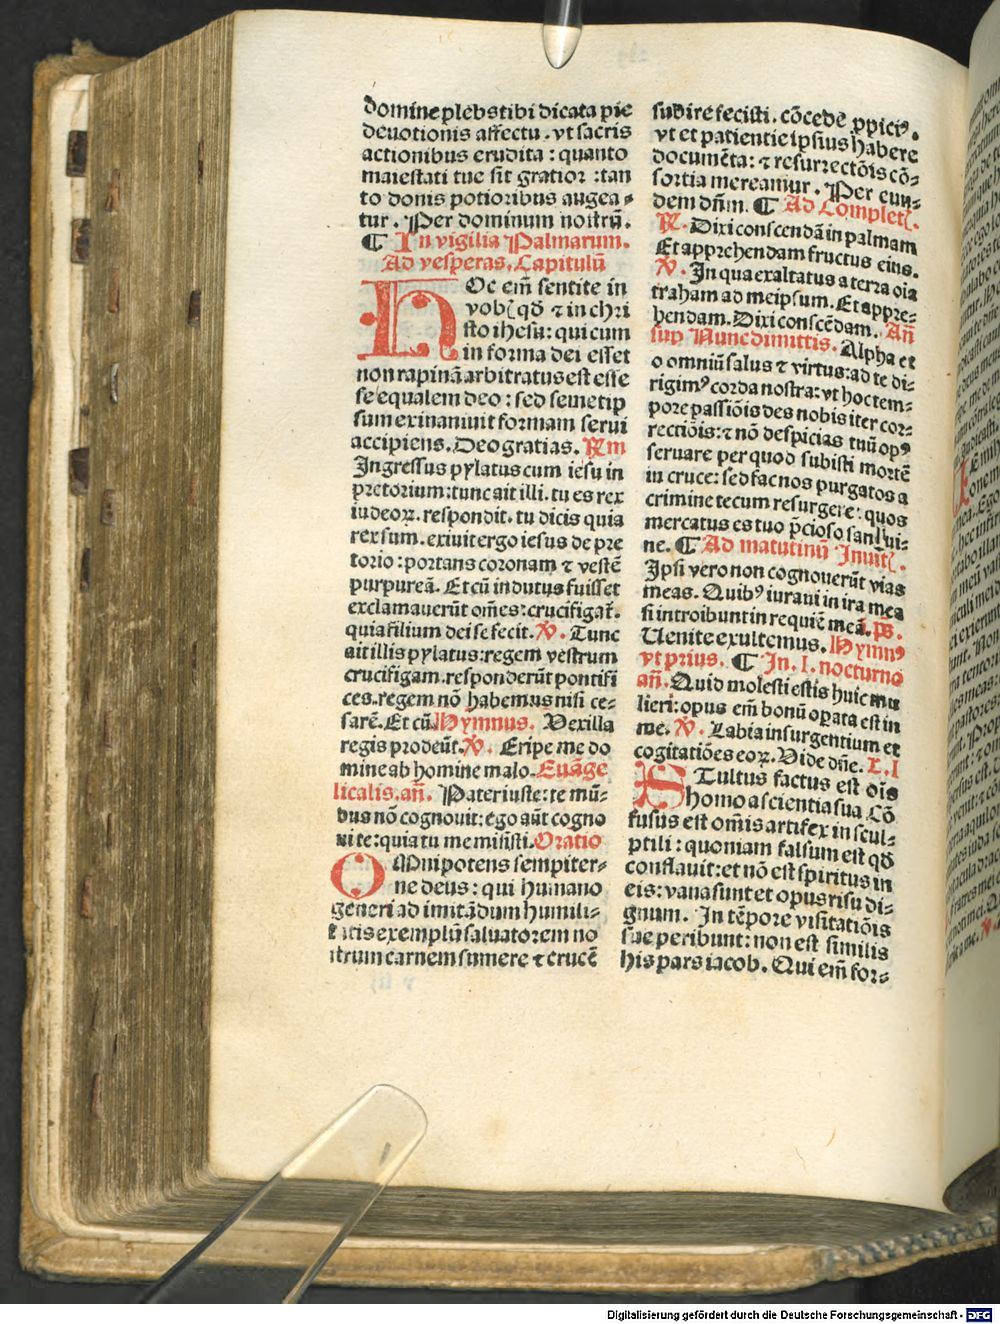 domine plebs tibi dicata pie
deuotionis affectu . vt sacris
actionibus erudita : quanto
maiestati tue sit gratior : tan
to donis potioribus augea⸗
tur . Per dominum nostrū.
¶ In vigilia Palmarum.
Ad vesperas. Capitulū
HOc em̄ sentite in
vobꝭ qđ ⁊ in chri
sto ihesu: qui cum
in forma dei esset
non rapinā arbitratus est esse
se equalem deo : sed semetip
sum exinaniuit formam serui
accipiens. Deo gratias. Rm
Ingressus pylatus cum iesu in
pretorium: tunc ait illi. tu es rex
iudeoꝝ. respondit. tu dicis quia
rex sum. exiuit ergo iesus de pre
torio : portans coronam ⁊ vestē
purpureā. Et cū indutus fuisset
exclamauerūt om̄es: crucifigat̄.
quia filium dei se fecit. ℣. Tunc
ait illis pylatus: regem vestrum
crucifigam. responderūt pontifi
ces. regem nō habemus nisi ce⸗
sarē. Et cū. Hymnus. Vexilla
regis prodeūt. ℣. Eripe me do
mine ab homine malo. Euāge
licalis. an̄. Pater iuste: te mū⸗
dus nō cognouit: ego aūt cogno
ui te: quia tu me misisti. Oratio
OMnipotens sempiter⸗
ne deus : qui humano
generi ad imitādum humili⸗
tatis exemplū saluatorem no
strum carnem sumere ⁊ crucē
subire fecisti . cōcede ꝓpiciꝰ.
vt et patientie ipsius habere
documēta: ⁊ resurrectōis cō⸗
sortia mereamur . Per eun⸗
dem dn̄m. ¶ Ad Completꝭ.
℟. Dixi conscendā in palmam
Et apprehendam fructus eius.
℣. In qua exaltatus a terra oīa
traham ad meipsum. Et appre⸗
hendam. Dixi conscēdam. An̄
sup Nuncdimittis. Alpha et
o omniū salus ⁊ virtus: ad te di⸗
rigimꝰ corda nostra: vt hoc tem⸗
pore passiōis des nobis iter cor⸗
rectiōis: ⁊ nō despicias tuū opꝰ
seruare per quod subisti mortē
in cruce: sed fac nos purgatos a
crimine tecum resurgere: quos
mercatus es tuo p̄cioso sangui⸗
ne. ¶ Ad matutinū Inuitꝭ.
Ipsi vero non cognouerūt vias
meas. Quibꝰ iuraui in ira mea
si introibunt in requiē meā. ps̄.
Uenite exultemus. Hymnꝰ
vt prius. ¶ In. I. nocturno
an̄. Quid molesti estis huic mu
lieri: opus em̄ bonū opata est in
me. ℣. Labia insurgentium et
cogitatiōes eoꝝ. Vide dn̄e. L. I
STultus factus est oīs
homo a scientia sua Cō
fusus est om̄is artifex in scul⸗
ptili : quoniam falsum est qđ
conflauit: et nō est spiritus in
eis: vana sunt et opus risu di⸗
gnum. In tēpore visitatiōis
sue peribunt: non est similis
his pars iacob. Qui em̄ for⸗
Digitalisierung gefördert durch die Deutsche Forschungsgemeinschaft - DFG